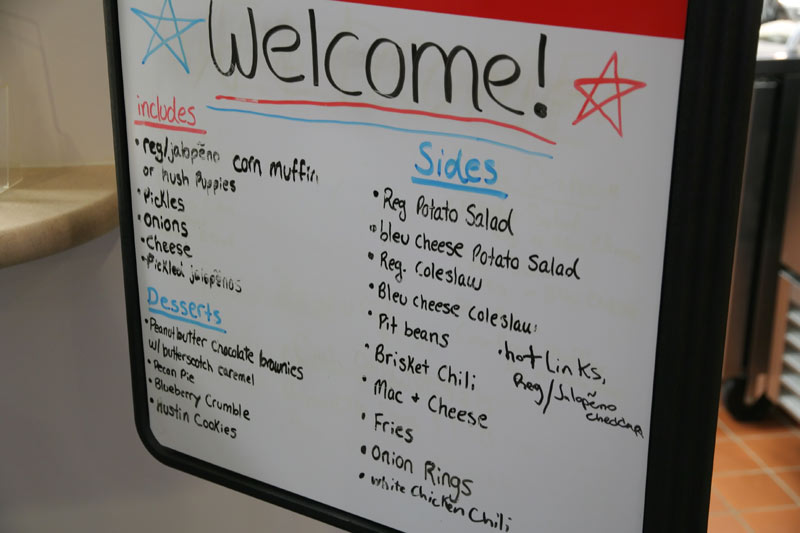 Welcome!
includes
• reg/jalapeño corn muffin
or Hush Puppies
• Pickles
• Onions
• Cheese
• Pickled jalapeños
Desserts
• Peanutbutter Chocolate brownies
w/ butterscotch caramel
• Pecan Pie
• Blueberry Crumble
• Austin Cookies
Sides
• Reg Potato Salad
• bleu cheese Potato Salad
• Reg. Coleslaw
• Bleu cheese coleslaw
• Pit beans
• Brisket Chili
• Mac + Cheese
• Fries
• Onion Rings
• White Chicken Chili
• hot Links,
Reg/Jalapeño
cheddar